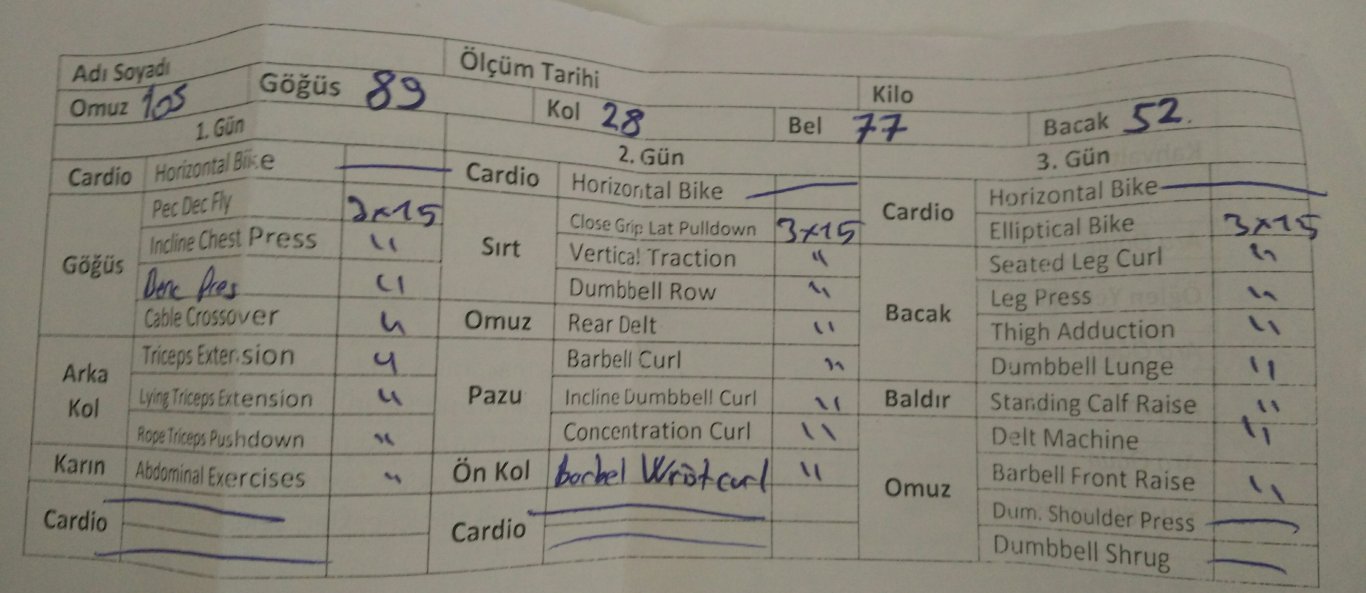 Adı Soyadı Ölçüm Tarihi Kilo
Omuz 105 Göğüs 89 Kol 28 Bel 77 Bacak 52.
1. Gün
Cardio Horizontal Bike
Göğüs
Pec Dec Fly 3x15
Incline Chest Press "
Benc Pres "
Cable Crossover "
Arka Kol
Triceps Extension "
Lying Triceps Extension "
Rope Triceps Pushdown "
Karın Abdominal Exercises "
Cardio
2. Gün
Cardio Horizontal Bike
Sırt
Close Grip Lat Pulldown 3x15
Vertical Traction "
Dumbbell Row "
Omuz Rear Delt "
Pazu
Barbell Curl "
Incline Dumbbell Curl "
Concentration Curl "
Ön Kol Barbel Wrist curl "
Cardio
3. Gün
Cardio
Horizontal Bike
Elliptical Bike 3x15
Bacak
Seated Leg Curl "
Leg Press "
Thigh Adduction "
Dumbbell Lunge "
Baldır Standing Calf Raise "
Omuz
Delt Machine "
Barbell Front Raise "
Dum. Shoulder Press
Dumbbell Shrug